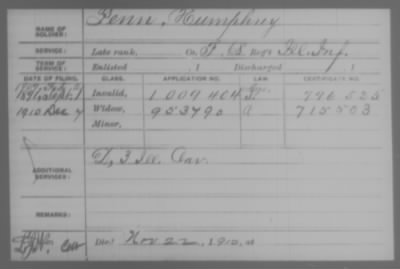 NAME OF SOLDIER: Penn, Humphrey
SERVICE: Late rank, Co. F, Reg't Ill. Inf.
TERM OF SERVICE: Enlisted , 1 Discharged , 1
DATE OF FILING. CLASS. APPLICATION NO. LAW CERTIFICATE NO.
1891, Sept. 1 Invalid, 1 009 404
1910 Dec 7 Widow, 953793 715503
Minor,
ADDITIONAL SERVICES: D, 3 Ill. Cav.
REMARKS:
Died Nov 22, 1910, at